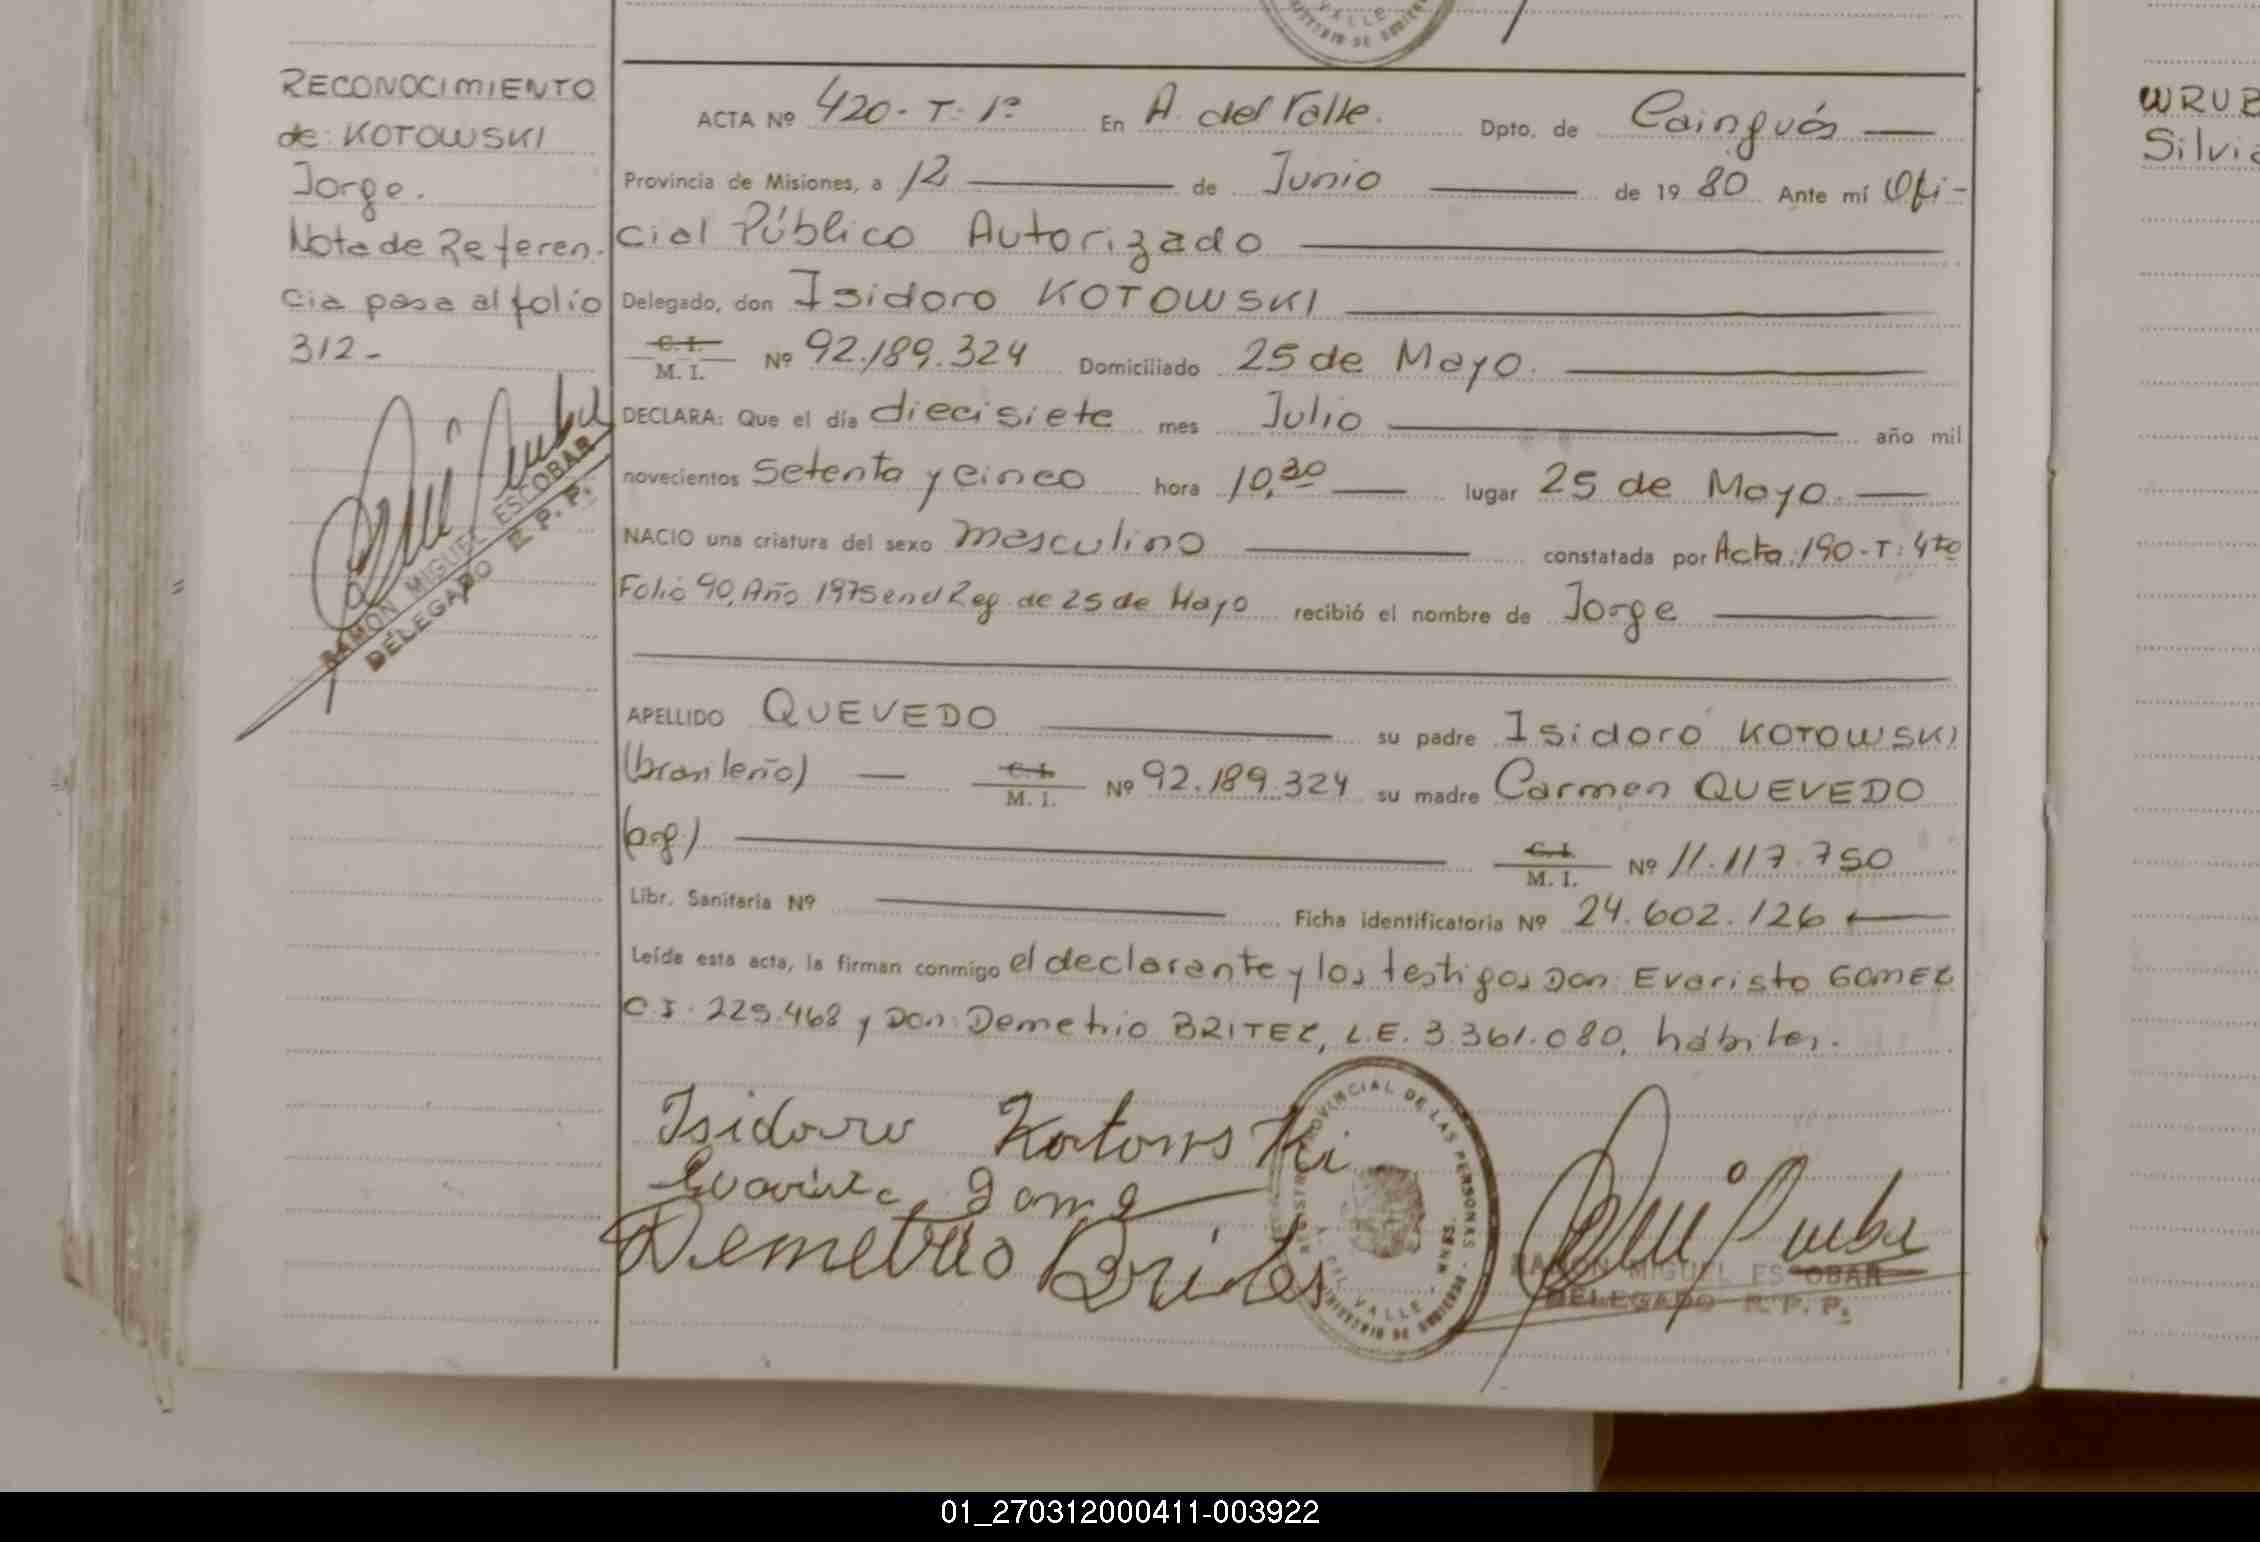 RECONOCIMIENTO
de: KOTOWSKI
Jorge.
Nota de Referen-
cia pasa al folio
312-
RAMON MIGUEL ESCOBAR
DELEGADO R. P. P.
ACTA Nº 420-T: 1º En A. del Valle. Dpto. de Cainguás
Provincia de Misiones, a 12 de Junio de 1980 Ante mí Ofi-
cial Público Autorizado
Delegado, don Isidoro KOTOWSKI
C. I.
M. I. Nº 92.189.324 Domiciliado 25 de Mayo.
DECLARA: Que el día diecisiete mes Julio año mil
novecientos Setenta y cinco hora 10,30 lugar 25 de Mayo.
NACIO una criatura del sexo masculino constatada por Acta: 190-T: 4to
Folio 90, Año 1975 en el Reg. de 25 de Mayo recibió el nombre de Jorge
APELLIDO QUEVEDO su padre Isidoro KOTOWSKI
(brasileño) C. I.
M. I. Nº 92.189.324 su madre Carmen QUEVEDO
(arg.) C. I.
M. I. Nº 11.117.750
Libr. Sanitaria Nº Ficha identificatoria Nº 24.602.126
Leída esta acta, la firman conmigo el declarante y los testigos Don: Evaristo GOMEZ
C.I. 225.468 y Don: Demetrio BRITEZ, L.E. 3.361.080, hábiles.
Isidoro Kotowski
Evaristo Gomez
Demetrio Brites
REGISTRO PROVINCIAL DE LAS PERSONAS
A. DEL VALLE - MNES.
MINISTERIO DE GOBIERNO
RAMON MIGUEL ESCOBAR
DELEGADO R. P. P.
WRUB
Silvia
01_270312000411-003922